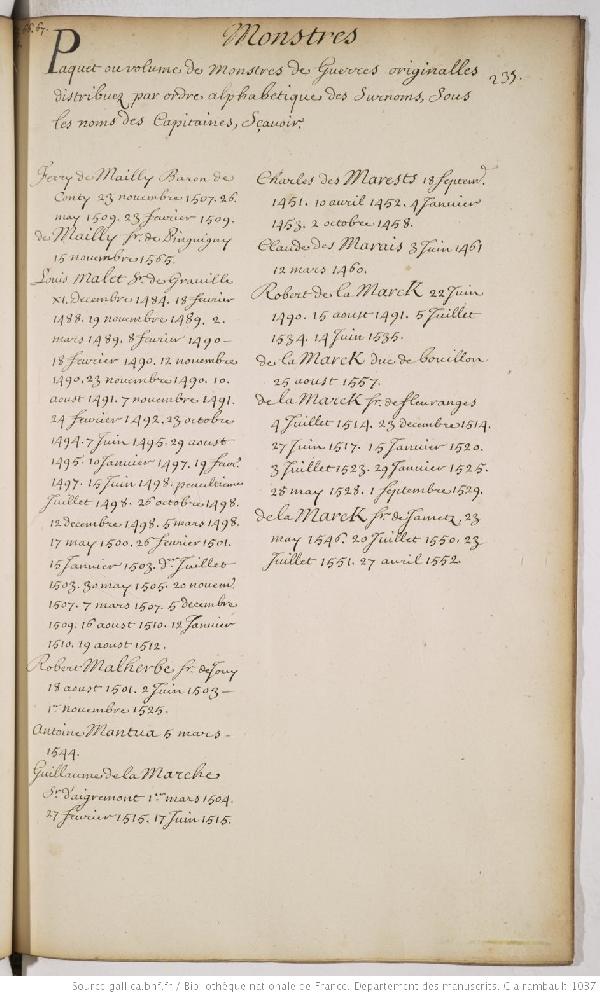 Monstres
Paquet ou volume de Monstres de Guerres originalles
235.
distribuez par ordre alphabetique des Surnoms, Sous
les noms des Capitaines, Sçavoir.
Ferry de Mailly Baron de
Conty 23 novembre 1507. 26.
may 1509. 23 fevrier 1509.
de Mailly Sr. de Pinguigny
15 novembre 1565.
Louis Malet Sr. de Graville
XI. Decembre 1484. 18 fevrier
1488. 19 novembre 1489. 2.
mars 1489. 8 fevrier 1490 -
18 fevrier 1490. 12 novembre
1490. 23 novembre 1490. 10.
aoust 1491. 7 novembre 1491.
24 fevrier 1492. 23 octobre
1494. 7 Juin 1495. 29 aoust
1495. 10 Janvier 1497. 19 fevr.
1497. 15 Juin 1498. penultieme
Juillet 1498. 26 octobre 1498.
12 decembre 1498. 5 mars 1498.
17 may 1500. 26 fevrier 1501.
15 Janvier 1503. Juillet
1503. 30 may 1505. 20 novem.
1507. 7 mars 1507. 5 decembre
1509. 16 aoust 1510. 12 Janvier
1510. 19 aoust 1512.
Robert Malherbe Sr. de Jouy
18 aoust 1501. 2 Juin 1503 -
1er novembre 1525.
Antoine Mantua 5 mars -
1544.
Guillaume de la Marche
Sr. d'aigremont 1er mars 1504.
27 fevrier 1515. 17 Juin 1515.
Charles des Marests 18 Septem.
1451. 10 avril 1452. 4 Janvier
1453. 2 octobre 1458.
Claude des Marais 3 Juin 1461
12 mars 1460.
Robert de la Marck 22 Juin
1490. 15 aoust 1491. 5 Juillet
1534. 14 Juin 1535.
de la Marck duc de bouillon
25 aoust 1557.
de la Marck Sr. de fleuranges
4 Juillet 1514. 23 decembre 1514.
27 Juin 1517. 15 Janvier 1520.
3 Juillet 1523. 29 Janvier 1525.
28 may 1528. 1 Septembre 1529.
de la Marck Sr. de Jametz, 23
may 1546. 20 Juillet 1550. 23
Juillet 1551. 27 avril 1552.
Source gallica.bnf.fr / Bibliothèque nationale de France. Département des manuscrits. Clairambault 1087